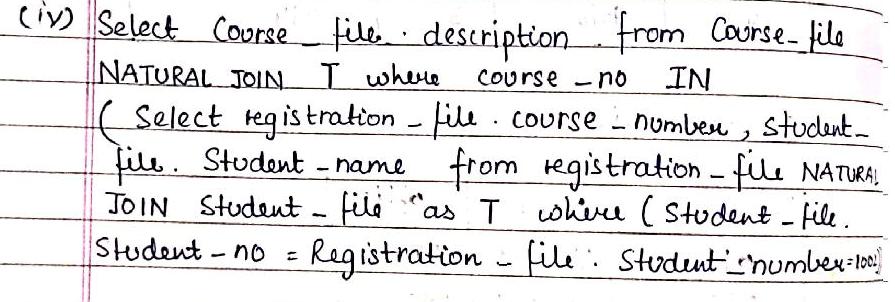 (iv) Select Course_file. description from Course_file
NATURAL JOIN T where course_no IN
( Select registration_file. course_number, Student_
file. Student_name from registration_file NATURAL
JOIN Student_file "as T where (Student_file.
Student_no = Registration_file. Student_number=1001)